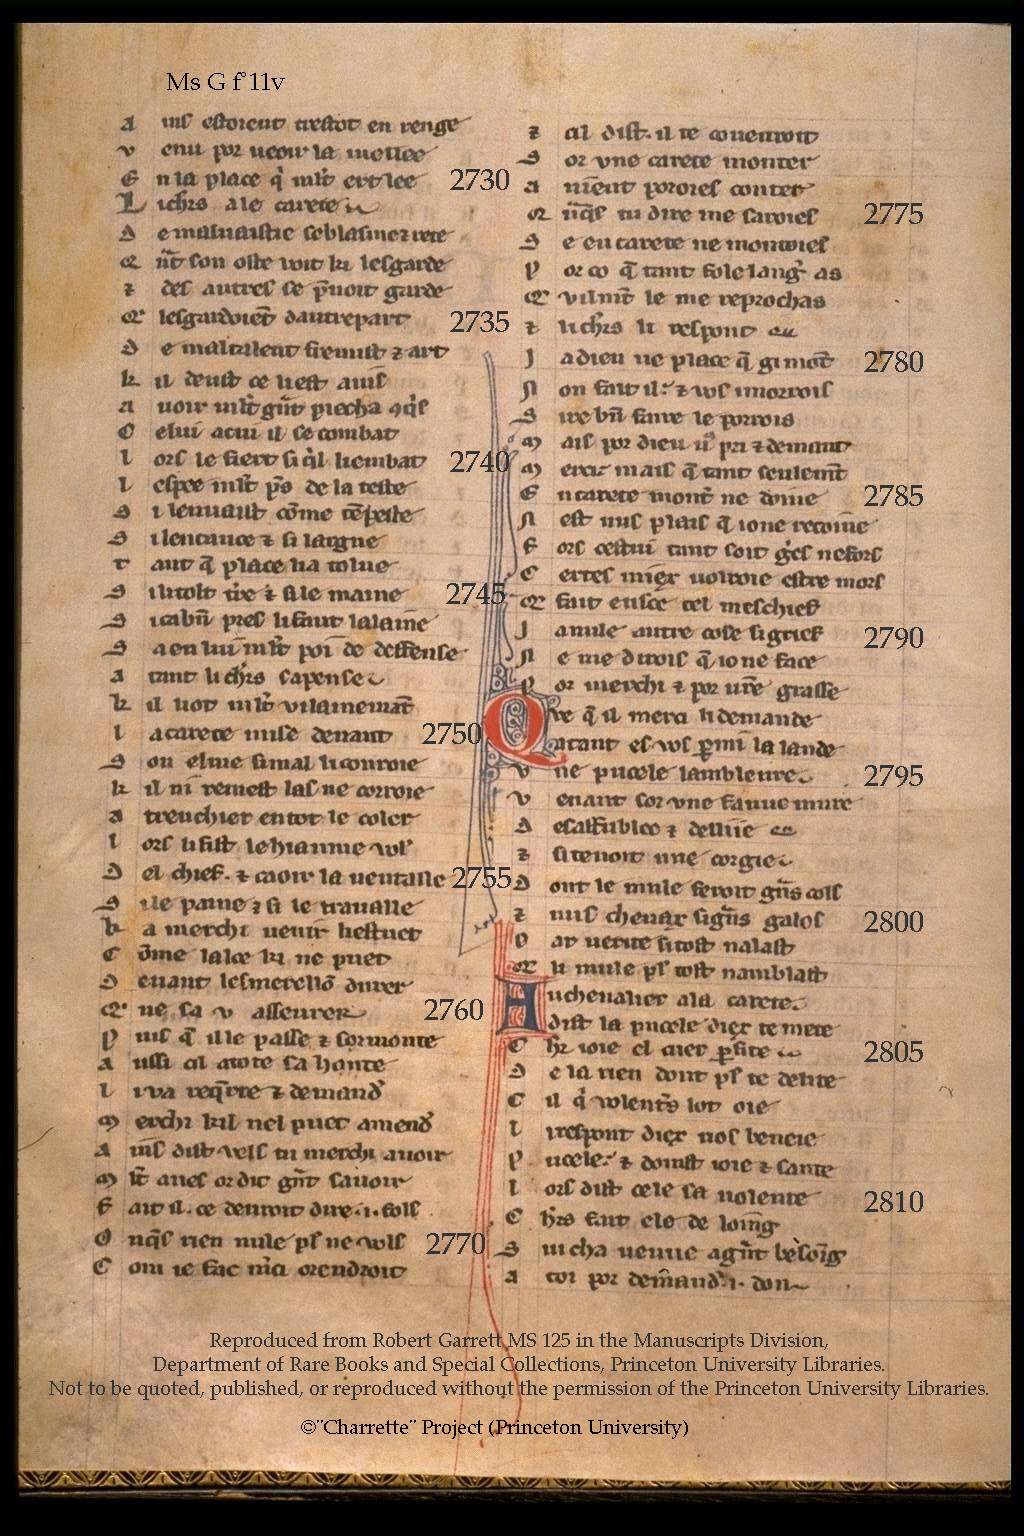 Ms G f° 11v
A ins estoient trestot en renge
V enu por ueoir la mellee
E n la place q̓ ml̓t ert lee 2730
L i chrs a le carete
D e maluaistie se blasme ⁊ rete
Q n̄t son oste voit ki lesgarde
⁊ des autres se p̄noit garde
Q' lesgardoiēt dautrepart 2735
D e maltalent fremist ⁊ art
k il deust ce li est auis
A uoir ml̓t gn̄t piecha ꝯq̓s
C elui a cui il se combat
L ors le fiert si q̓l li embat 2740
L espee ml̓t p̄s de la teste
S i lenuaist cōme tēpeste
S i lencauce ⁊ si largue
T ant q̄ place li a tolue
S i li tolt t̓re ⁊ si le maine 2745
S i ca bn̄ pres li faut lalaine
S a en lui ml̓t poi de deffense
A tant li chrs sapense
k il uot ml̓t vilainemāt
L a carete mise deuant 2750
S on elme si mal li conroie
k il ni remest las ne corroie
A trenchier entor le coler
L ors li fist le hiaume voler
D el chief. ⁊ caoir la uentaille 2755
S i le paine ⁊ si le trauaille
k a merchi uenir lestuet
C ōme laloe ki ne puet
D euant lesmerellō durer
Q' ne sa v asseurer 2760
P uis q̄ ille passe ⁊ sormonte
A ussi cil a tote sa honte
L i va req̄rre ⁊ demand̓
M erchi kil nel puet amend̓
A ins dist vels tu merchi auoir
M l̓t aues or dit gn̄t sauoir
F ait il. ce deuroit dire .i. fols
O nq̓s rien nule pl̓s ne vols 2770
C om ie fac m̓ci orendroit
⁊ cil dist. il te couenroit
S or vne carete monter
A nient porroies conter
Q n̄q̓s tu dire me saroies 2775
S e en carete ne montoies
P or co q̄ tant fole lang̓ as
Q' vilmt̄ le me reprochas
⁊ li chrs li respont
J a dieu ne place q̄ gi mōt 2780
N on fait il.' ⁊ vos i morrois
S ire bn̄ faire le porrois
M ais por dieu u̓ pri ⁊ demant
M erci mais q̄ tant seulemt̄
E n carete mont̓ ne doīne 2785
N est nus plais q̄ ione recoīne
F ors cestui tant soit g̓es ne fors
C ertes miex uolroie estre mors
Q fait eusce cel meschief
J a nule autre cose si grief 2790
N e me dirois q̄ ione face
P or merchi ⁊ por ur̄e grasse
Q ve q̄ il merci li demande
Atant es vos ꝑmi la lande
V ne pucele lambleure 2795
V enant sor vne fauue mure
D esaffublee ⁊ desliie
⁊ si tenoit une corgie
D ont le mule feroit gn̄s cols
⁊ nus cheuax si gn̄s galos 2800
P or uerite si tost nalast
Q li mule pl̓s tost namblast
A u cheualier a la carete.
dist la pucele diex te mete
C hr̄ ioie el cuer ꝑfite 2805
D e la rien dont pl̓s te delite
C il q̓ volentr̄s lot oie
L i respont diex uos beneie
P ucele.' ⁊ doinst ioie ⁊ sante
L ors dist cele sa uolente 2810
C hrs fait ele de loing
S ui cha uenue a gn̄t besoig
A toi por demand̓ .i. don
Reproduced from Robert Garrett MS 125 in the Manuscripts Division,
Department of Rare Books and Special Collections, Princeton University Libraries.
Not to be quoted, published, or reproduced without the permission of the Princeton University Libraries.
©"Charrette" Project (Princeton University)